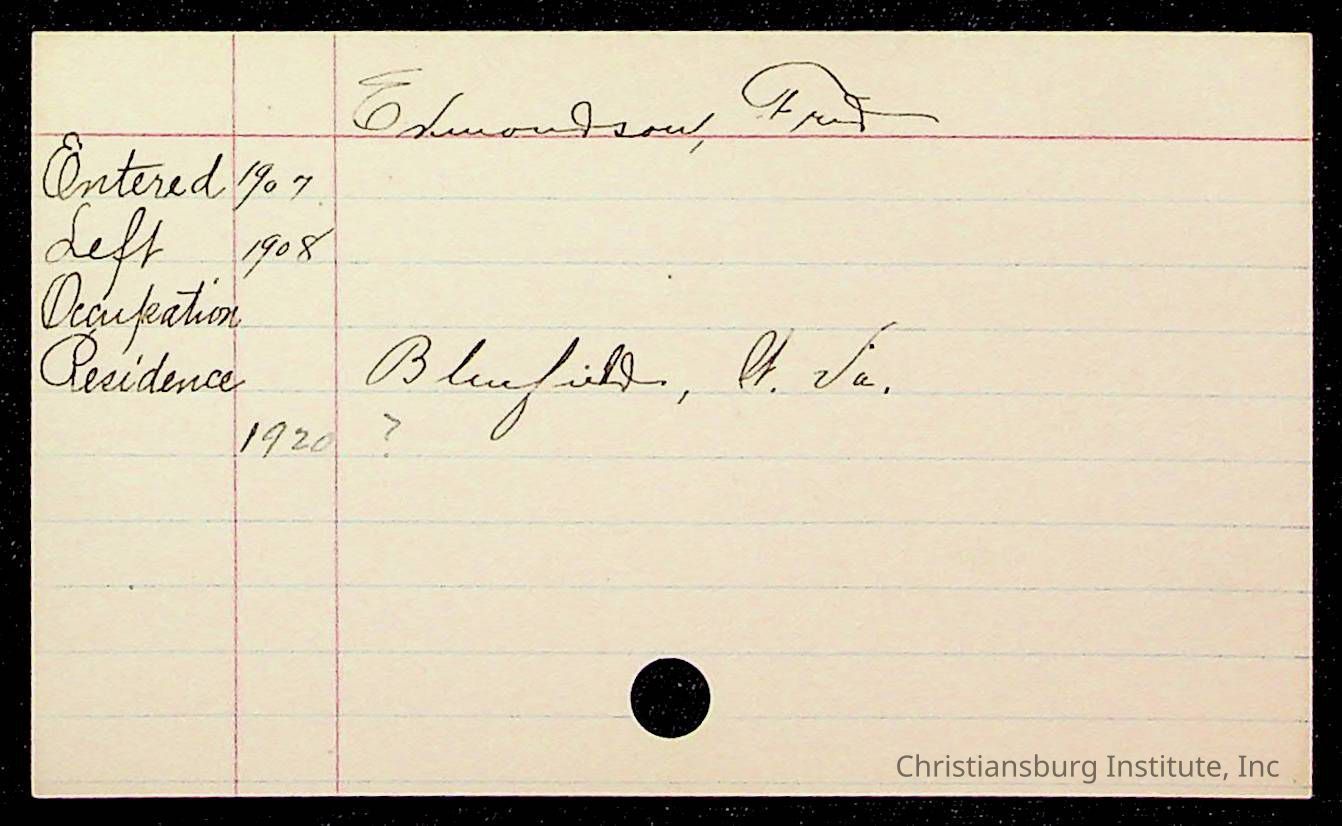 Edmondson, Fred
Entered 1907
Left 1908
Occupation
Residence Bluefield, W. Va.
1920 ?
Christiansburg Institute, Inc